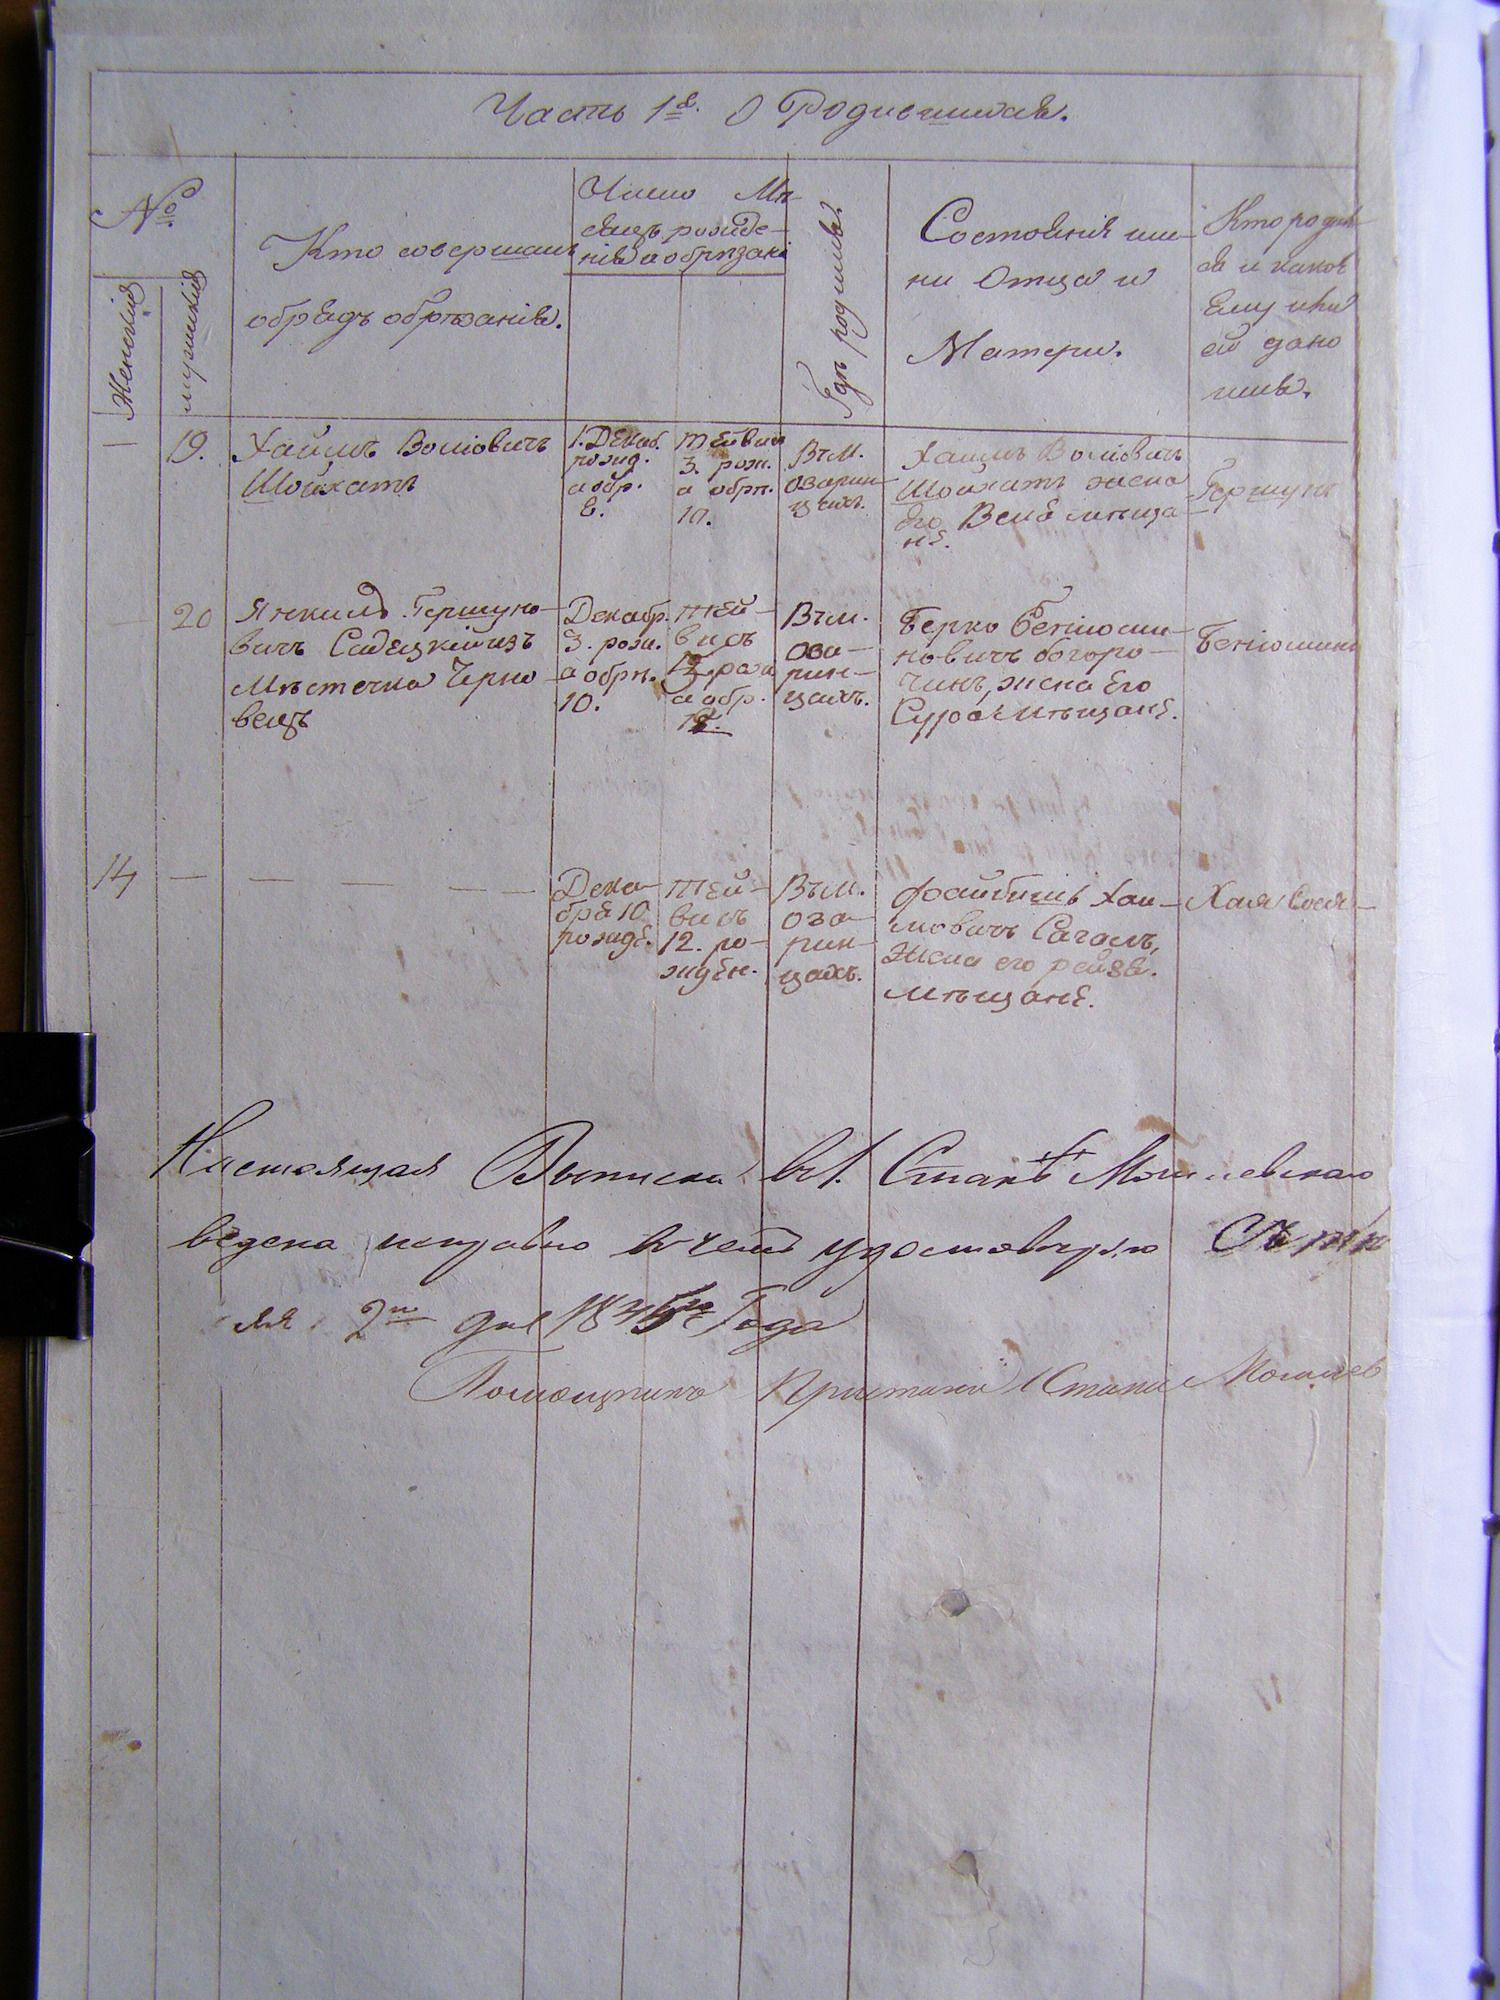 Часть 1я. О Родившихся.
№
Женскія
мужескія
Кто совершалъ
обрядъ обрѣзанія.
Число Мѣ-
сяцъ рожде-
нія и обрѣзані
Гдѣ родился.
Состоянія им-
ни Отца и
Матери.
Кто родил-
ся и каков
Ему или
ей дано
имя.
19.
Хаимъ Волковичъ
Шойхатъ
1. Декаб.
рожд.
а обр.
8.
тейвис
3. рож.
а обрѣ.
10.
Въ м.
Озарин-
цахъ.
Хаимъ Волковичъ
Шойхатъ жена
Его Вела мѣща-
не.
Гершунъ
20
Янкилъ Гершуно-
вичъ Садецкій изъ
Мѣстечка Черно-
вецъ
Декабр.
3. рож.
а обрѣ.
10.
тей-
висъ
а обр.
Въ м.
Оза-
рин-
цахъ.
Берко Беніоми-
новичъ богоро-
чинъ, жена Его
Сура мѣщане.
Беніоминъ
14
Дека-
бря 10
рожде.
Тей-
висъ
12. ро-
жден.
Въ м.
Оза-
рин-
цахъ.
Файбишъ Хаи-
мовичъ Сагалъ,
Жена его рейзя.
мѣщане.
Хая Сося
Настоящая Выписка въ 1. Станѣ Могилевскаго
ведена исправно въ чемъ удостовѣряю
2го дня Года
Помощникъ Пристава 1 Стана Могилев